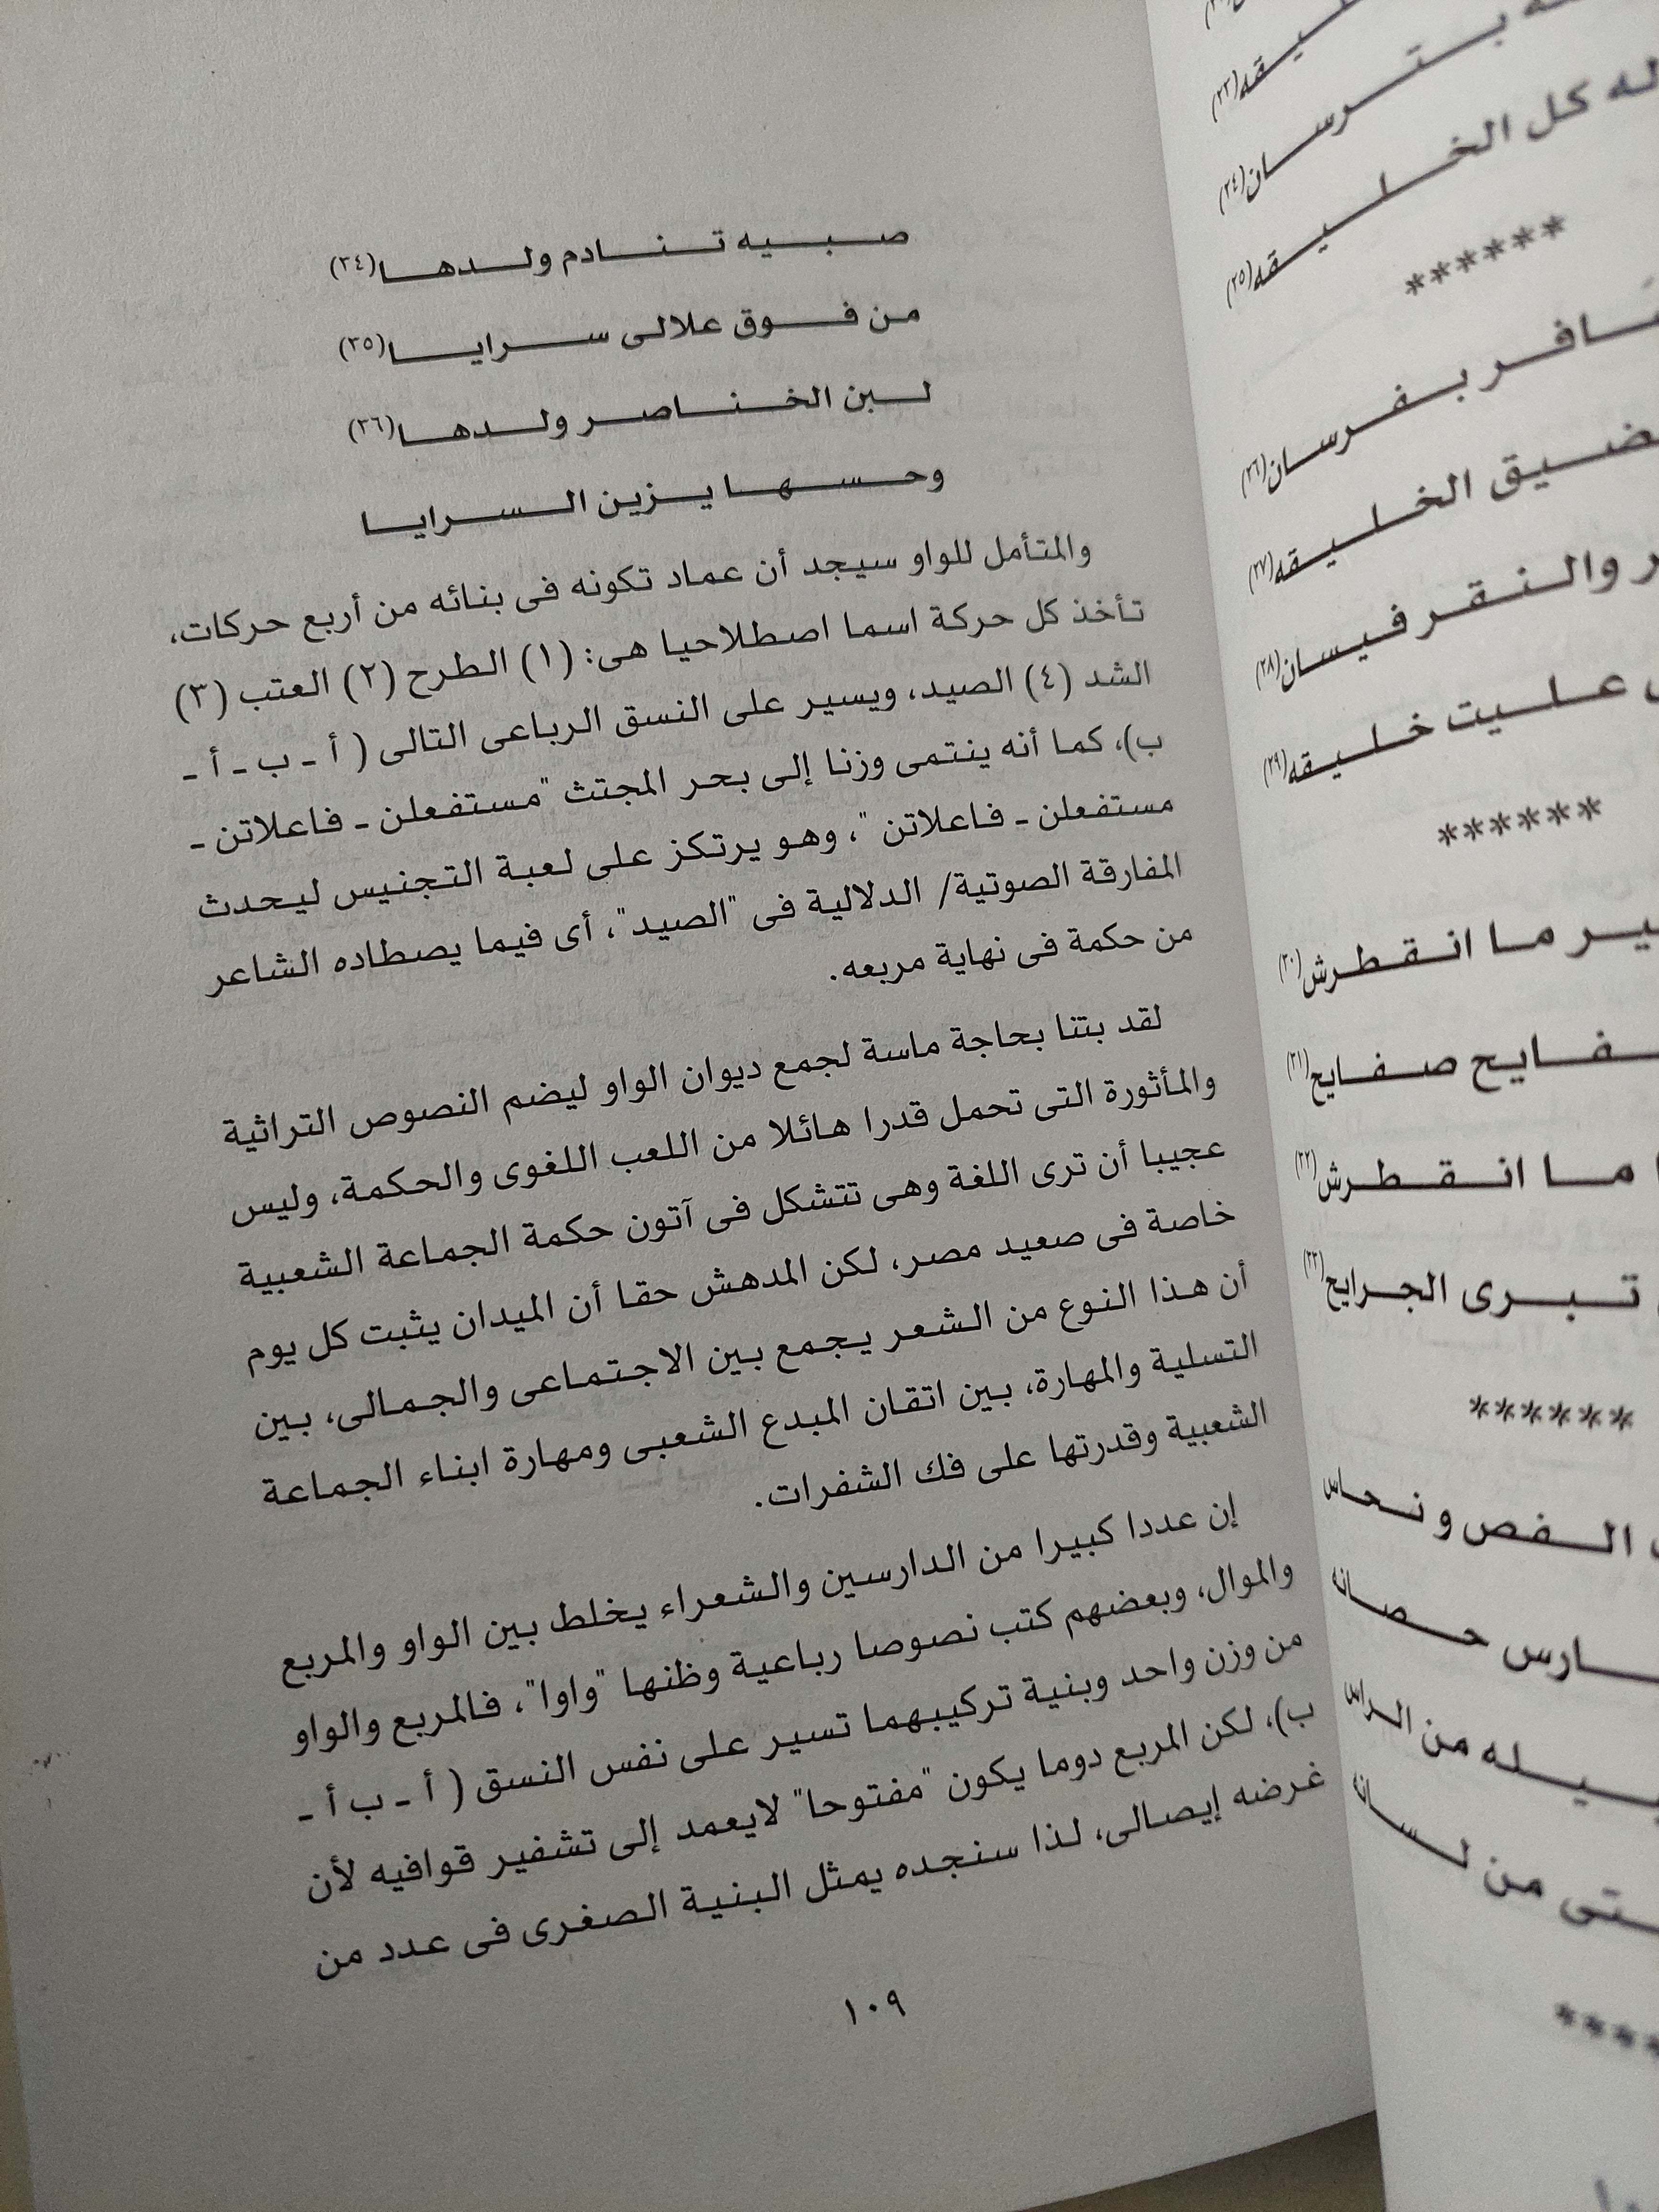 صبيه تنادم ولدها(٣٤)
من فوق علالى سرايا(٣٥)
لبن الخناصر ولدها(٣٦)
وحسها يزين السرايا
والمتأمل للواو سيجد أن عماد تكونه فى بنائه من أربع حركات،
تأخذ كل حركة اسما اصطلاحيا هى: (١) الطرح (٢) العتب (٣)
الشد (٤) الصيد، ويسير على النسق الرباعى التالى ( أ ـ ب ـ أ ـ
ب)، كما أنه ينتمى وزنا إلى بحر المجتث "مستفعلن ـ فاعلاتن ـ
مستفعلن ـ فاعلاتن "، وهو يرتكز على لعبة التجنيس ليحدث
المفارقة الصوتية/ الدلالية فى "الصيد"، أى فيما يصطاده الشاعر
من حكمة فى نهاية مربعه.
لقد بتنا بحاجة ماسة لجمع ديوان الواو ليضم النصوص التراثية
والمأثورة التى تحمل قدرا هائلا من اللعب اللغوى والحكمة، وليس
عجيبا أن ترى اللغة وهى تتشكل فى آتون حكمة الجماعة الشعبية
خاصة فى صعيد مصر، لكن المدهش حقا أن الميدان يثبت كل يوم
أن هذا النوع من الشعر يجمع بين الاجتماعى والجمالى، بين
التسلية والمهارة، بين اتقان المبدع الشعبى ومهارة ابناء الجماعة
الشعبية وقدرتها على فك الشفرات.
إن عددا كبيرا من الدارسين والشعراء يخلط بين الواو والمربع
والموال، وبعضهم كتب نصوصا رباعية وظنها "واوا"، فالمربع والواو
من وزن واحد وبنية تركيبهما تسير على نفس النسق ( أ ـ ب أ ـ
ب)، لكن المربع دوما يكون "مفتوحا" لايعمد إلى تشفير قوافيه لأن
غرضه إيصالى، لذا سنجده يمثل البنية الصغرى فى عدد من
١٠٩
بترسان(٢٤)
كل الخليقه(٢٥)
******
بفرسان(٢٦)
الخليقه(٢٧)
والنقر فيسان(٢٨)
عليت خليقه(٢٩)
******
ما انقطرش(٣٠)
صفايح(٣١)
ما انقطرش(٣٢)
تبرى الجرايح(٣٣)
******
الفص ونحاس
حصانه
من الراس
من لسانه